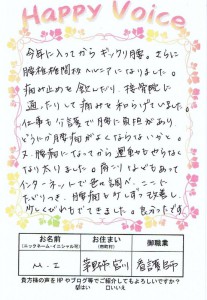 Happy Voice
今年に入ってからギックリ腰。さらに
腰椎椎間板ヘルニアになりました。
痛み止めを飲んだり、接骨院に
通ったりして痛みを和らげていました。
仕事も介護で腰に負担があり、
どうにか腰痛がよくならないかと。
又、腰痛になってから運動もやらなく
なり太りました。肩こりなどもあって
インターネットで色々調べ、ここに
たどりつき、腰痛もとてもずっと改善し、
も出てきました。良かったです
お名前
(ニックネーム・イニシャル可)
お住まい
(市町村)
御職業
M・I
茅野市宮川
看護師
貴方様の声をHPやブログ等でご紹介してもよろしいですか?
はい 口いいえ